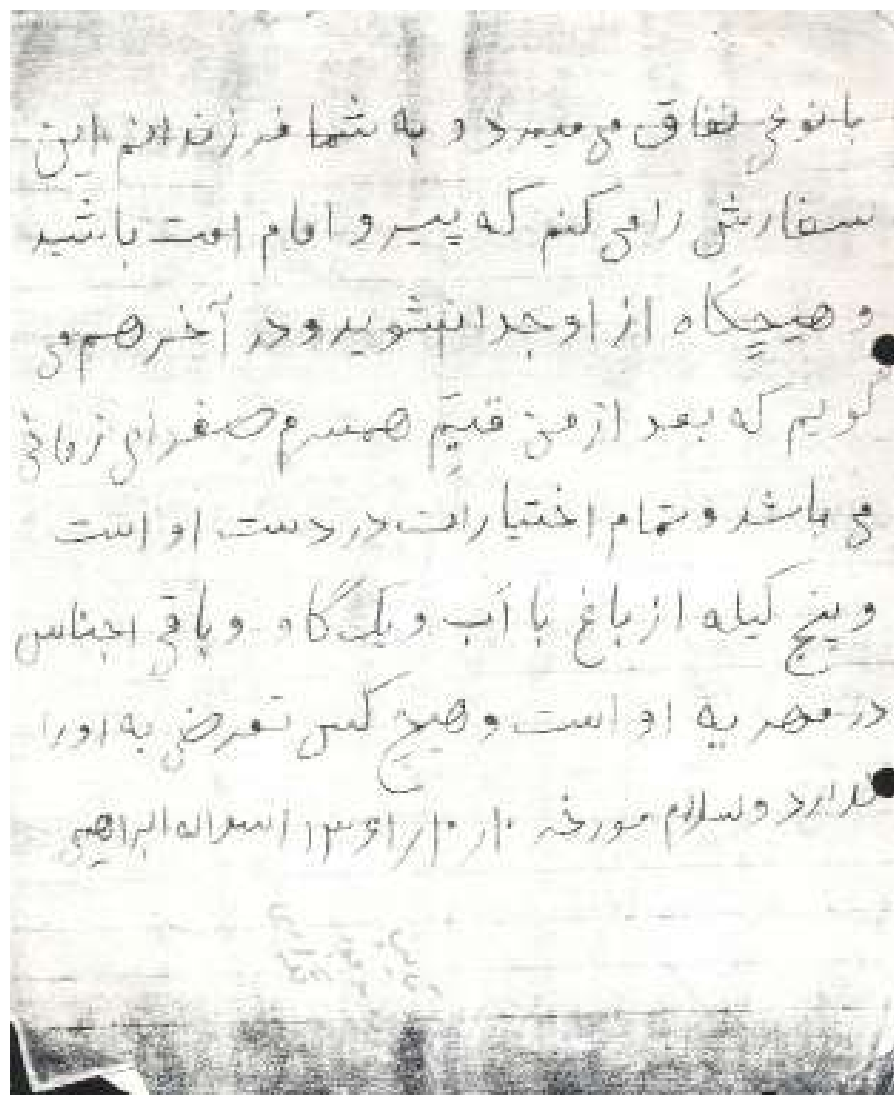 با نوعی نفاق می میرد و به شما فرزندانم این
سفارش را می کنم که پیرو امام امت باشید
و هیچگاه از او جدا نشوید و در آخر هم می
گویم که بعد از من قیّم همسرم صغرای زمانی
می باشد و تمام اختیارات در دست او است
و پنج کیله از باغ با آب و یک گاو و باقی اجناس
در مهریه او است و هیچ کس تعرضی به او را
ندارد وسلام مورخه ۱۳۶۱/۱۰/۱۰ اسداله ابراهیمی